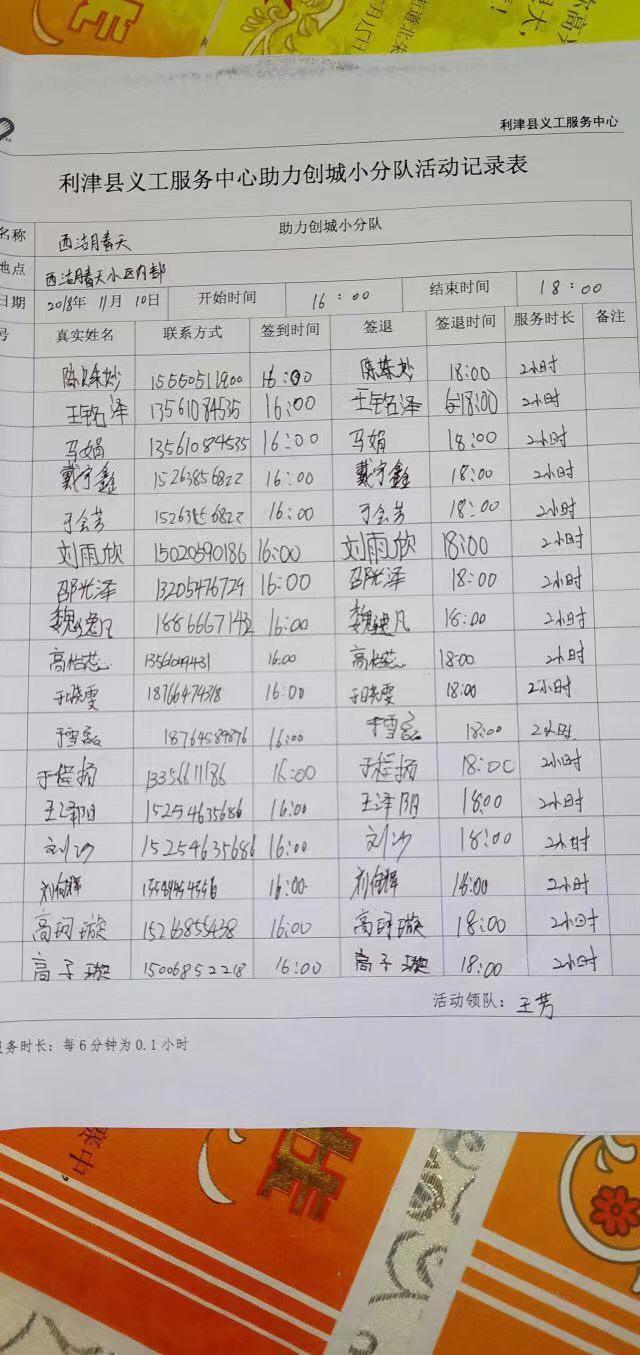 利津县义工服务中心
利津县义工服务中心助力创城小分队活动记录表
名称 西湖晴天 助力创城小分队
地点 西湖晴天小区内部
日期 2018年 11月 10日 开始时间 16:00 结束时间 18:00
号 真实姓名 联系方式 签到时间 签退 签退时间 服务时长 备注
15550511900 16:00 18:00 2小时
王铭泽 13561084535 16:00 王铭泽 18:00 2小时
马娟 13561084535 16:00 马娟 18:00 2小时
戴宇鑫 15263856822 16:00 戴宇鑫 18:00 2小时
于会芳 15263856822 16:00 于会芳 18:00 2小时
刘雨欣 15020590186 16:00 刘雨欣 18:00 2小时
邵光泽 13205476729 16:00 邵光泽 18:00 2小时
16:00 18:00 2小时
高怡蕊 16:00 高怡蕊 18:00 2小时
于晓雯 18766474318 16:00 于晓雯 18:00 2小时
18764589876 16:00 18:00 2小时
于程扬 13356611186 16:00 于程扬 18:00 2小时
王泽阳 15254635686 16:00 王泽阳 18:00 2小时
刘沙 15254635686 16:00 刘沙 18:00 2小时
16:00 2小时
高珂璇 16:00 高珂璇 18:00 2小时
高子璇 15006852218 16:00 高子璇 18:00 2小时
活动领队：王芳
务时长：每6分钟为0.1小时